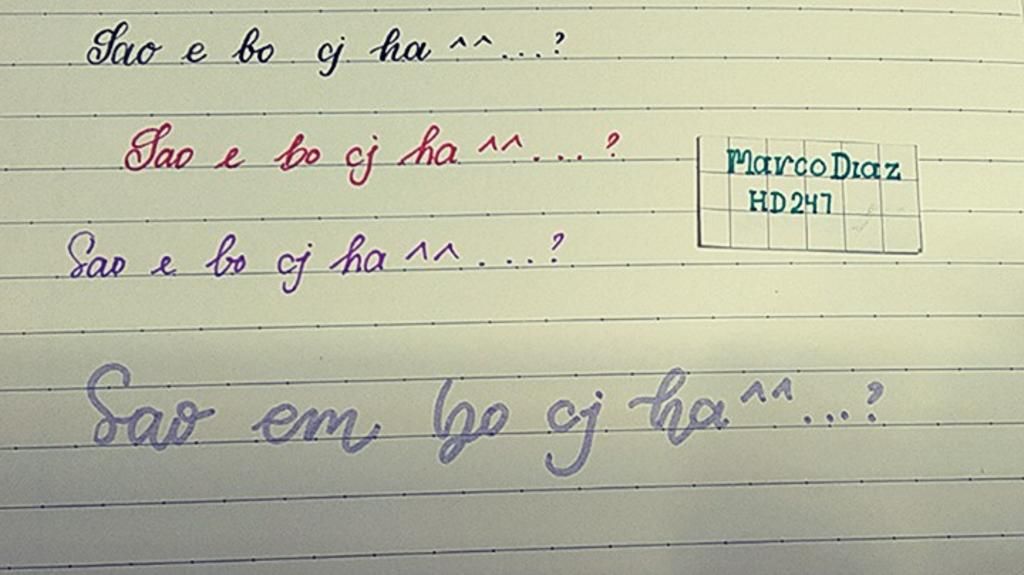 Sao e bo cj ha ^^...?
Sao e bo cj ha ^^....?
Marco Diaz
HD247
Sao e bo cj ha ^^....?
Sao em bo cj ha ^^...?